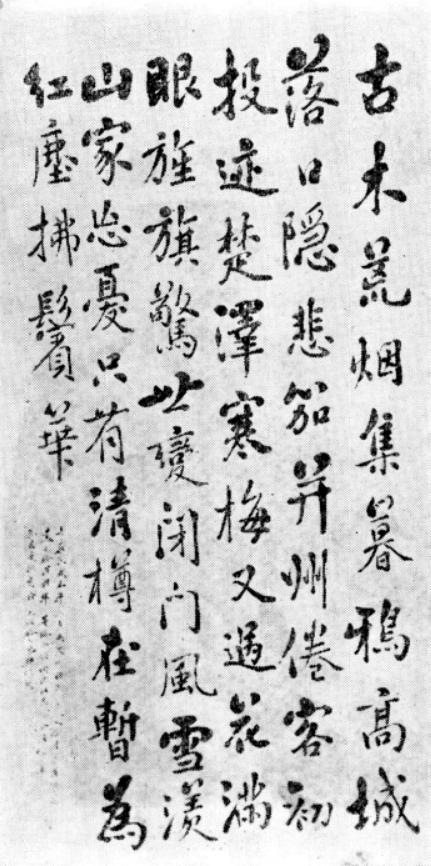 古木荒烟集暮鴉高城
落日隱悲笳并州倦客初
投迹楚澤寒梅又過花滿
眼旌旗驚世變閉門風雪羡
山家忘憂只有清樽在暫為
紅塵拂鬢華